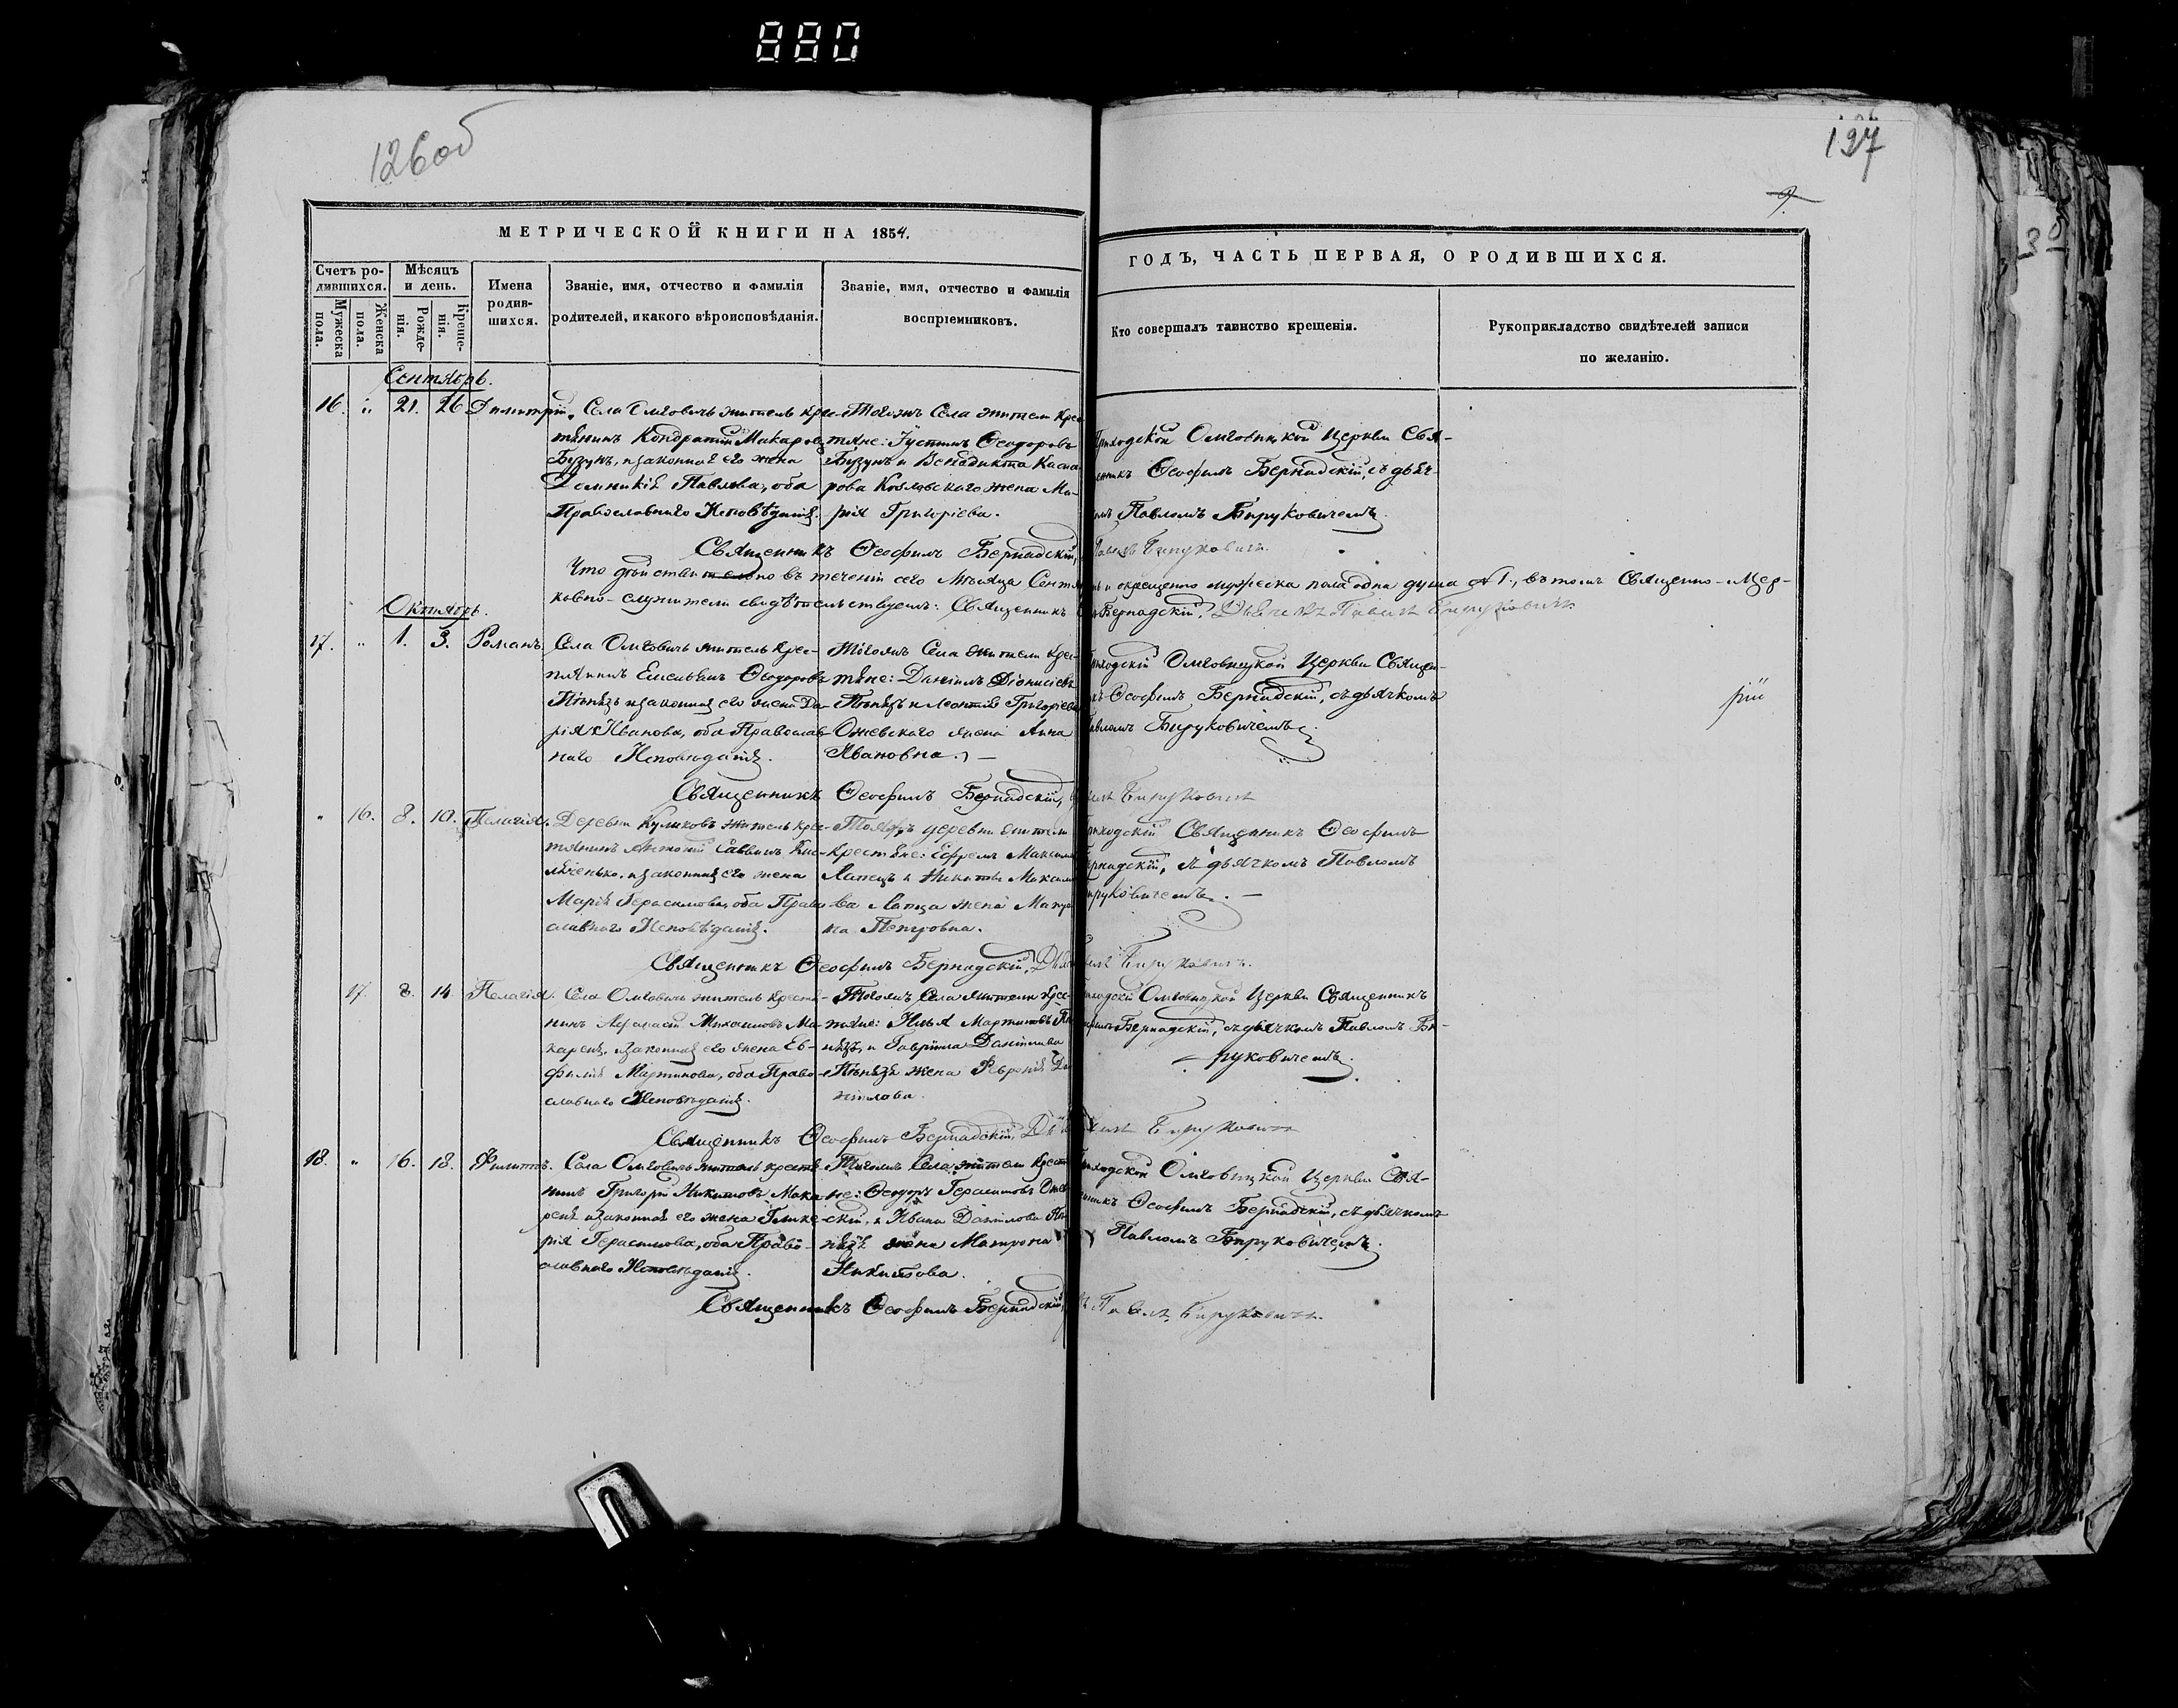 880
126об
127
9.
МЕТРИЧЕСКОЙ КНИГИ НА 1854.
ГОДЪ, ЧАСТЬ ПЕРВАЯ, О РОДИВШИХСЯ.
Счетъ ро-
дившихся.
Мужеска
пола.
Женска
пола.
Мѣсяцъ
и день.
Рожде-
нія.
Креще-
нія.
Имена
родив-
шихся.
Званіе, имя, отчество и фамилія
родителей, и какого вѣроисповѣданія.
Званіе, имя, отчество и фамилія
воспріемниковъ.
Кто совершалъ таинство крещенія.
Рукоприкладство свидѣтелей записи
по желанію.
Сентябрь.
16. " 21. 26 Димитрій.
Села Омговичъ житель кре-
стьянинъ Кондратій Макаровъ
Бузунъ, и законная его жена
Домникія Павлова, оба
Православнаго Исповѣданія.
Тогожъ Села жители крес
тяне: Іустинъ Ѳеодоровъ
Бузунъ и Венедикта Каспа
рова Козловскаго жена Ма-
рія Григоріева.
Приходской Омговицкой Церкви Свя-
щенникъ Ѳеофилъ Бернадскій, съ дьяч
комъ Павломъ Бируковичемъ.
Священникъ Ѳеофилъ Бернадскій, Павелъ Бируковичъ.
Что дѣйствительно въ теченіи сего Мѣсяца Сентя и окрещено мужеска пола одна душа №1., въ томъ Священно-Цер-
ковно-служители свидѣтельствуемъ: Священникъ Бернадскій. Дьячекъ Павелъ Бируковичъ
Октябрь.
17. " 1. 3. Романъ.
Села Омговичъ житель крес-
тянинъ Емельянъ Ѳеодоровъ
Пѣнязь и законная его жена Да-
рія Иванова, оба Православ
наго Исповѣданія.
Тогожъ Села жители крес-
тяне: Даніилъ Діонисіевъ
Пѣнязь и Леонтія Григоріева
Онежскаго жена Анна
Ивановна.
Приходскій Омговицкой Церкви Священ-
никъ Ѳеофилъ Бернадскій, съ дьячкомъ
Павломъ Бируковичемъ.
рій
Священникъ Ѳеофилъ Бернадскій, Бируковичъ
" 16. 8. 10. Пелагія.
Деревни Куликовъ житель крес-
тянинъ Антоній Саввинъ
и законная его жена
Марія Герасимова, оба Право
славнаго Исповѣданія.
Тояжъ деревни жители
Крестьяне: Ефремъ Максимо
Лапецъ и Никиты Максимо
ва Лапца жена Матро
на Петровна.
Приходскій Священникъ Ѳеофилъ
Бернадскій, съ дьячкомъ Павломъ
Бируковичемъ.
Священникъ Ѳеофилъ Бернадскій, Бируковичъ.
17. 8. 14. Пелагія.
Села Омговичъ житель крестья-
нинъ Аѳанасій Михайловъ Ма-
карени и законная его жена Ев-
фимія Мартинова, оба Право-
славнаго Исповѣданія.
Тогожъ Села жители крес-
тяне: Илья Мартиновъ Пѣ
нязь, и Гавріила Даніилова
Пѣнязя жена Февронія Да
ніилова.
Приходскій Омговицкой Церкви Священникъ
Бернадскій, съ дьячкомъ Павломъ Би-
руковичемъ.
Священникъ Ѳеофилъ Бернадскій, Бируковичъ
18. " 16. 18. Филиппъ.
Села Омговичъ житель крестья
нинъ Григорій Никитовъ Мака
реня и законная его жена Глике-
рія Герасимова, оба Право-
славнаго Исповѣданія.
Тогожъ Села жители крестья
не: Ѳеодоръ Герасимовъ
скій, и Ивана Даніилова Пѣ
нязя жена Матрона
Никитова.
Приходской Омговицкой Церкви Свя-
щенникъ Ѳеофилъ Бернадскій, съ дьячкомъ
Павломъ Бируковичемъ.
Священникъ Ѳеофилъ Бернадскій, Павелъ Бируковичъ.